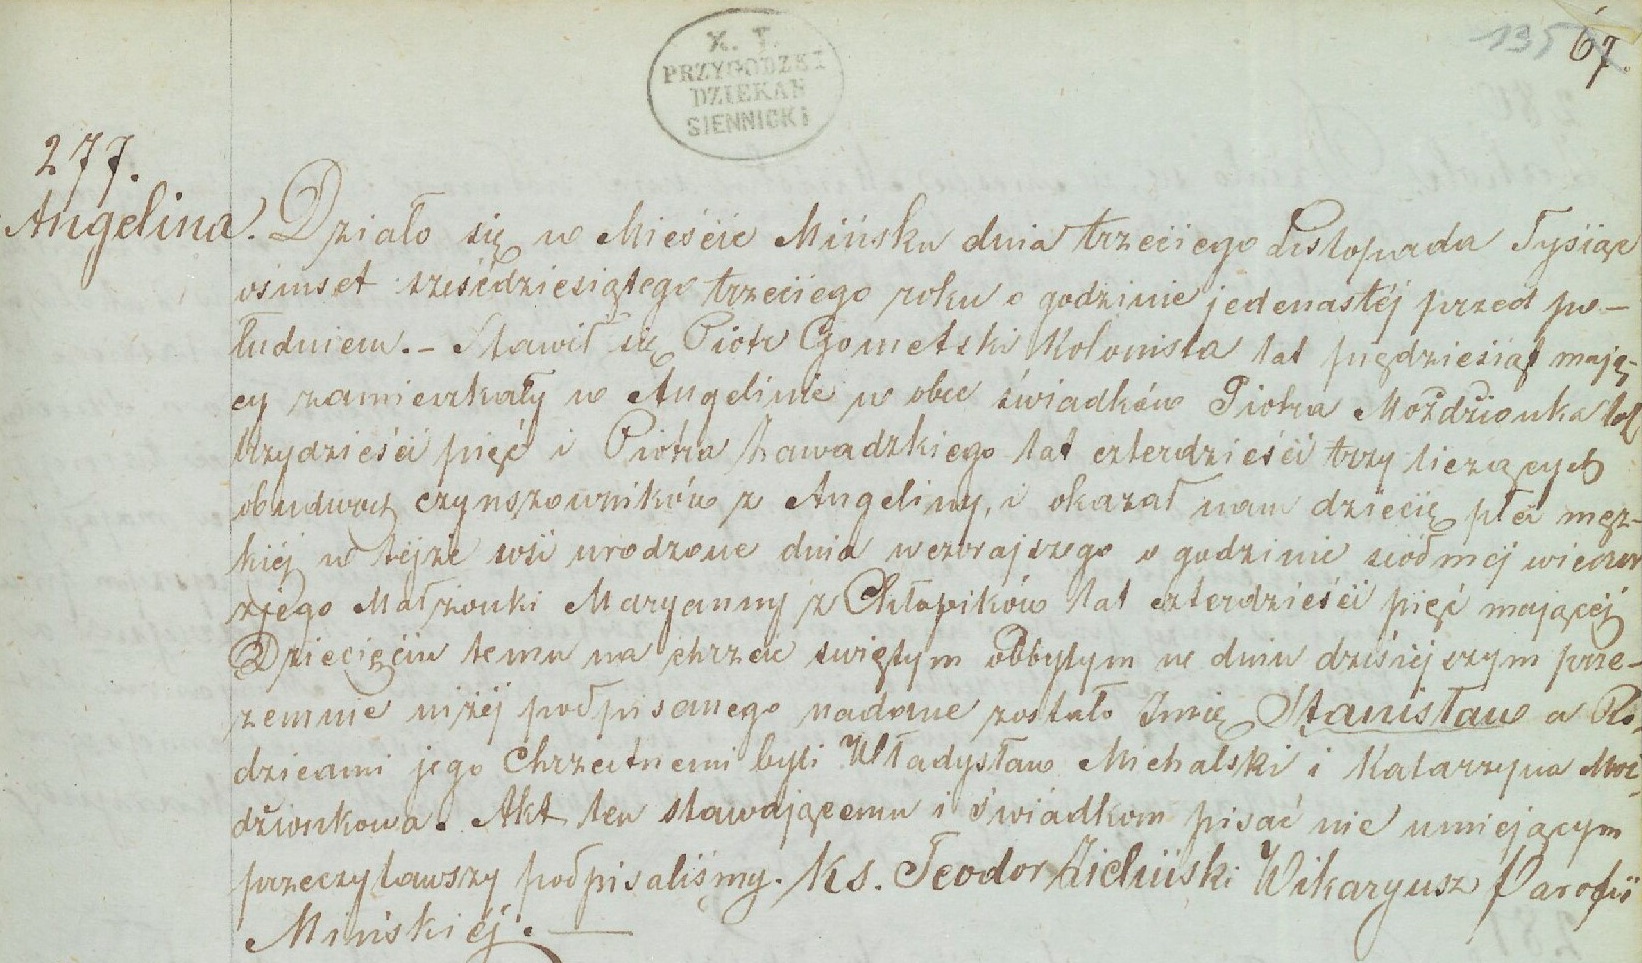 X. T.
PRZYGODZKI
DZIEKAN
SIENNICKI
135
67.
277.
Angelina.
Działo się w Mieście Mińsku dnia trzeciego Listopada Tysiąc
osmset sześćdziesiątego trzeciego roku o godzinie jedenastéj przed po-
łudniem. - Stawił się Piotr Gometski Kolonista lat pięćdziesiąt mają-
cy zamieszkały w Angelinie w obec świadków Piotra Możdżonka lat
trzydzieści pięć i Piotra Zawadzkiego lat czterdzieści trzy liczących
obudwóch czynszowników z Angeliny, i okazał nam dziecię płci męz-
kiéj w téjże wsi urodzone dnia wczorajszego o godzinie siódméj wieczor
z jego Małżonki Maryanny z Chłopików lat czterdzieści pięć mającéj
Dziecięciu temu na chrzcie świętym odbytym w dniu dzisiéjszym prze-
zemnie niżéj podpisanego nadane zostało Imię Stanisław a Ro-
dzicami jego Chrzestnemi byli Władysław Michalski i Katarzyna Moż-
dżonkowa. Akt ten stawającemu i świadkom pisać nie umiejącym
przeczytawszy podpisaliśmy. Ks. Teodor Zieliński Wikaryusz Parafii
Mińskiéj.